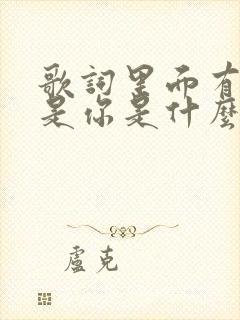 歌詞里面有
是你是什麼
盧克